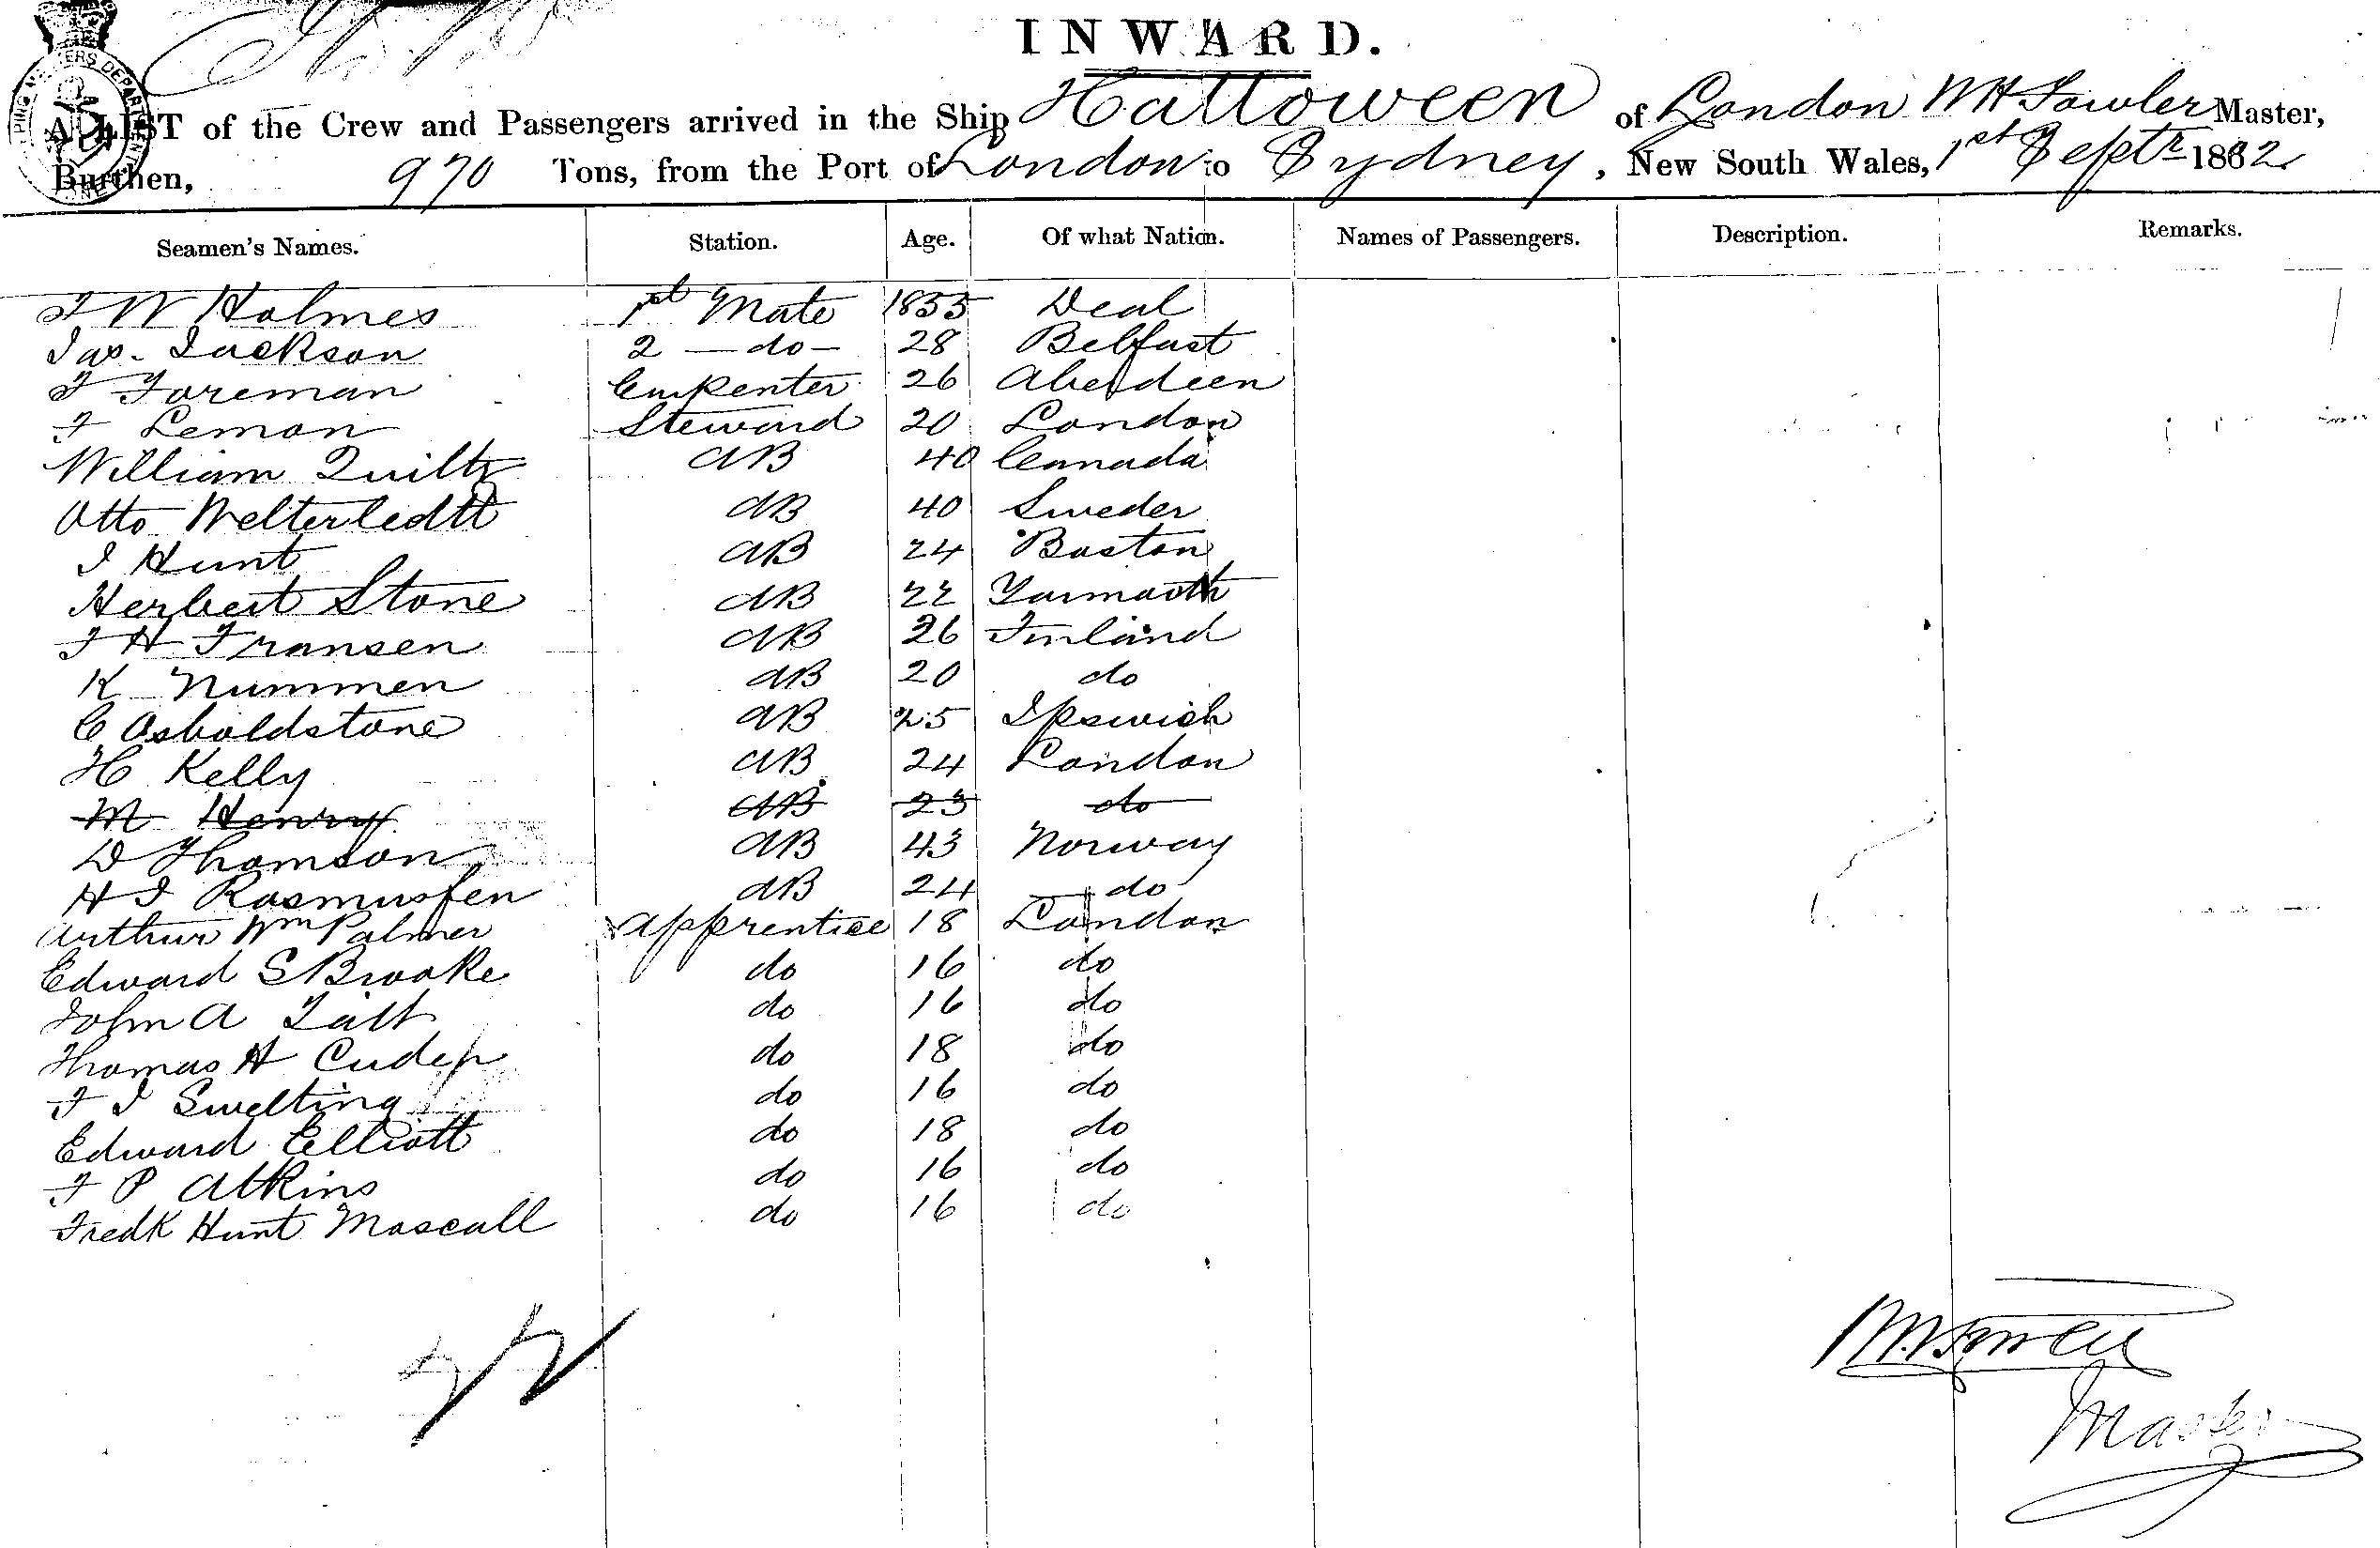 INWARD.
A LIST of the Crew and Passengers arrived in the Ship Halloween of London W H Fowler Master,
Burthen, 970 Tons, from the Port of London to Sydney, New South Wales, 1st Septr 1882
Seamen's Names. Station. Age. Of what Nation. Names of Passengers. Description. Remarks.
T W Holmes 1st Mate 1855 Deal
Jas. Jackson 2 — do — 28 Belfast
T Foreman Carpenter 26 Aberdeen
F Lemon Steward 20 London
William Quilty AB 40 Cannada
Otto AB 40 Sweden
J Hunt AB 24 Boston
Herbert Stone AB 22 Yarmouth
F H Fransen AB 26 Finland
K Nummen AB 20 do
C Osboldstone AB 25 Ipswich
H Kelly AB 24 London
M Henry AB 23 do
D Thomson AB 43 Norway
H J Rasmussen AB 24 do
Arthur Wm Palmer Apprentice 18 London
Edward S Brooke do 16 do
John A Tait do 16 do
Thomas H do 18 do
F J Swelting do 16 do
Edward Elliott do 18 do
F P Atkins do 16 do
Fredk Hunt Mascall do 16 do
Master